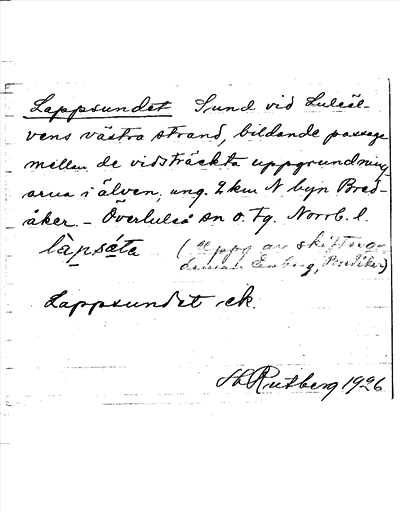 Lappsundet Sund vid Luleäl-
vens västra strand, bildande passage
mellan de vidsträckta uppgrundning
arna i älven, ung. 2 km N byn Bred-
åker. – Överluleå sn o. tg. Norrb. l.
làpsáta (Uppg av skiftsgo-
deman Enberg, Bredåker)
Lappsundet ek.
Rutberg 1926